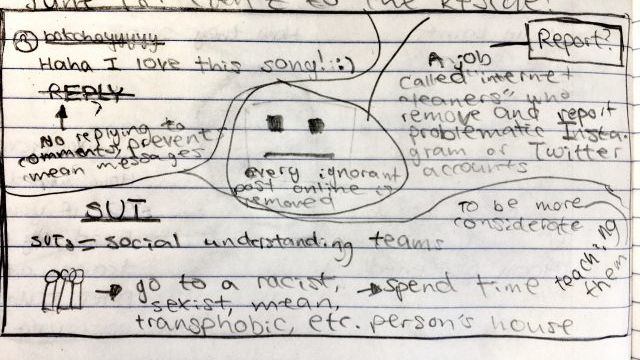 to the
Haha I love this song! :)
REPLY
No replying to
comments, prevent
mean messages
every ignorant
post online is
removed
Report?
A job
called "internet
cleaners" who
remove and report
problematic Insta-
gram or Twitter
accounts
SUT
SUTs = social understanding teams
→ go to a racist,
sexist, mean,
transphobic, etc. person's house
→ spend time teaching
them
To be more
considerate